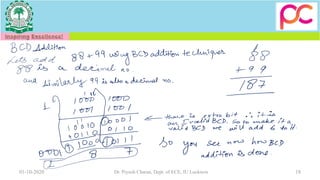 Inspiring Excellence!
BCD Addition
Lets add 88+99 using BCD addition techniques
88 is a decimal no
and similarly 99 is also a decimal no.
88
+99
187
1000 1000
1001 1001
10010 0001
0110 0110
0001 1000 0111
1 8 7
there is extra bit ∴ it is
an invalid BCD. So to make it a
valid BCD we will add 6 to it.
So you see now how BCD
addition is done
01-10-2020
Dr. Piyush Charan, Dept. of ECE, IU Lucknow
18